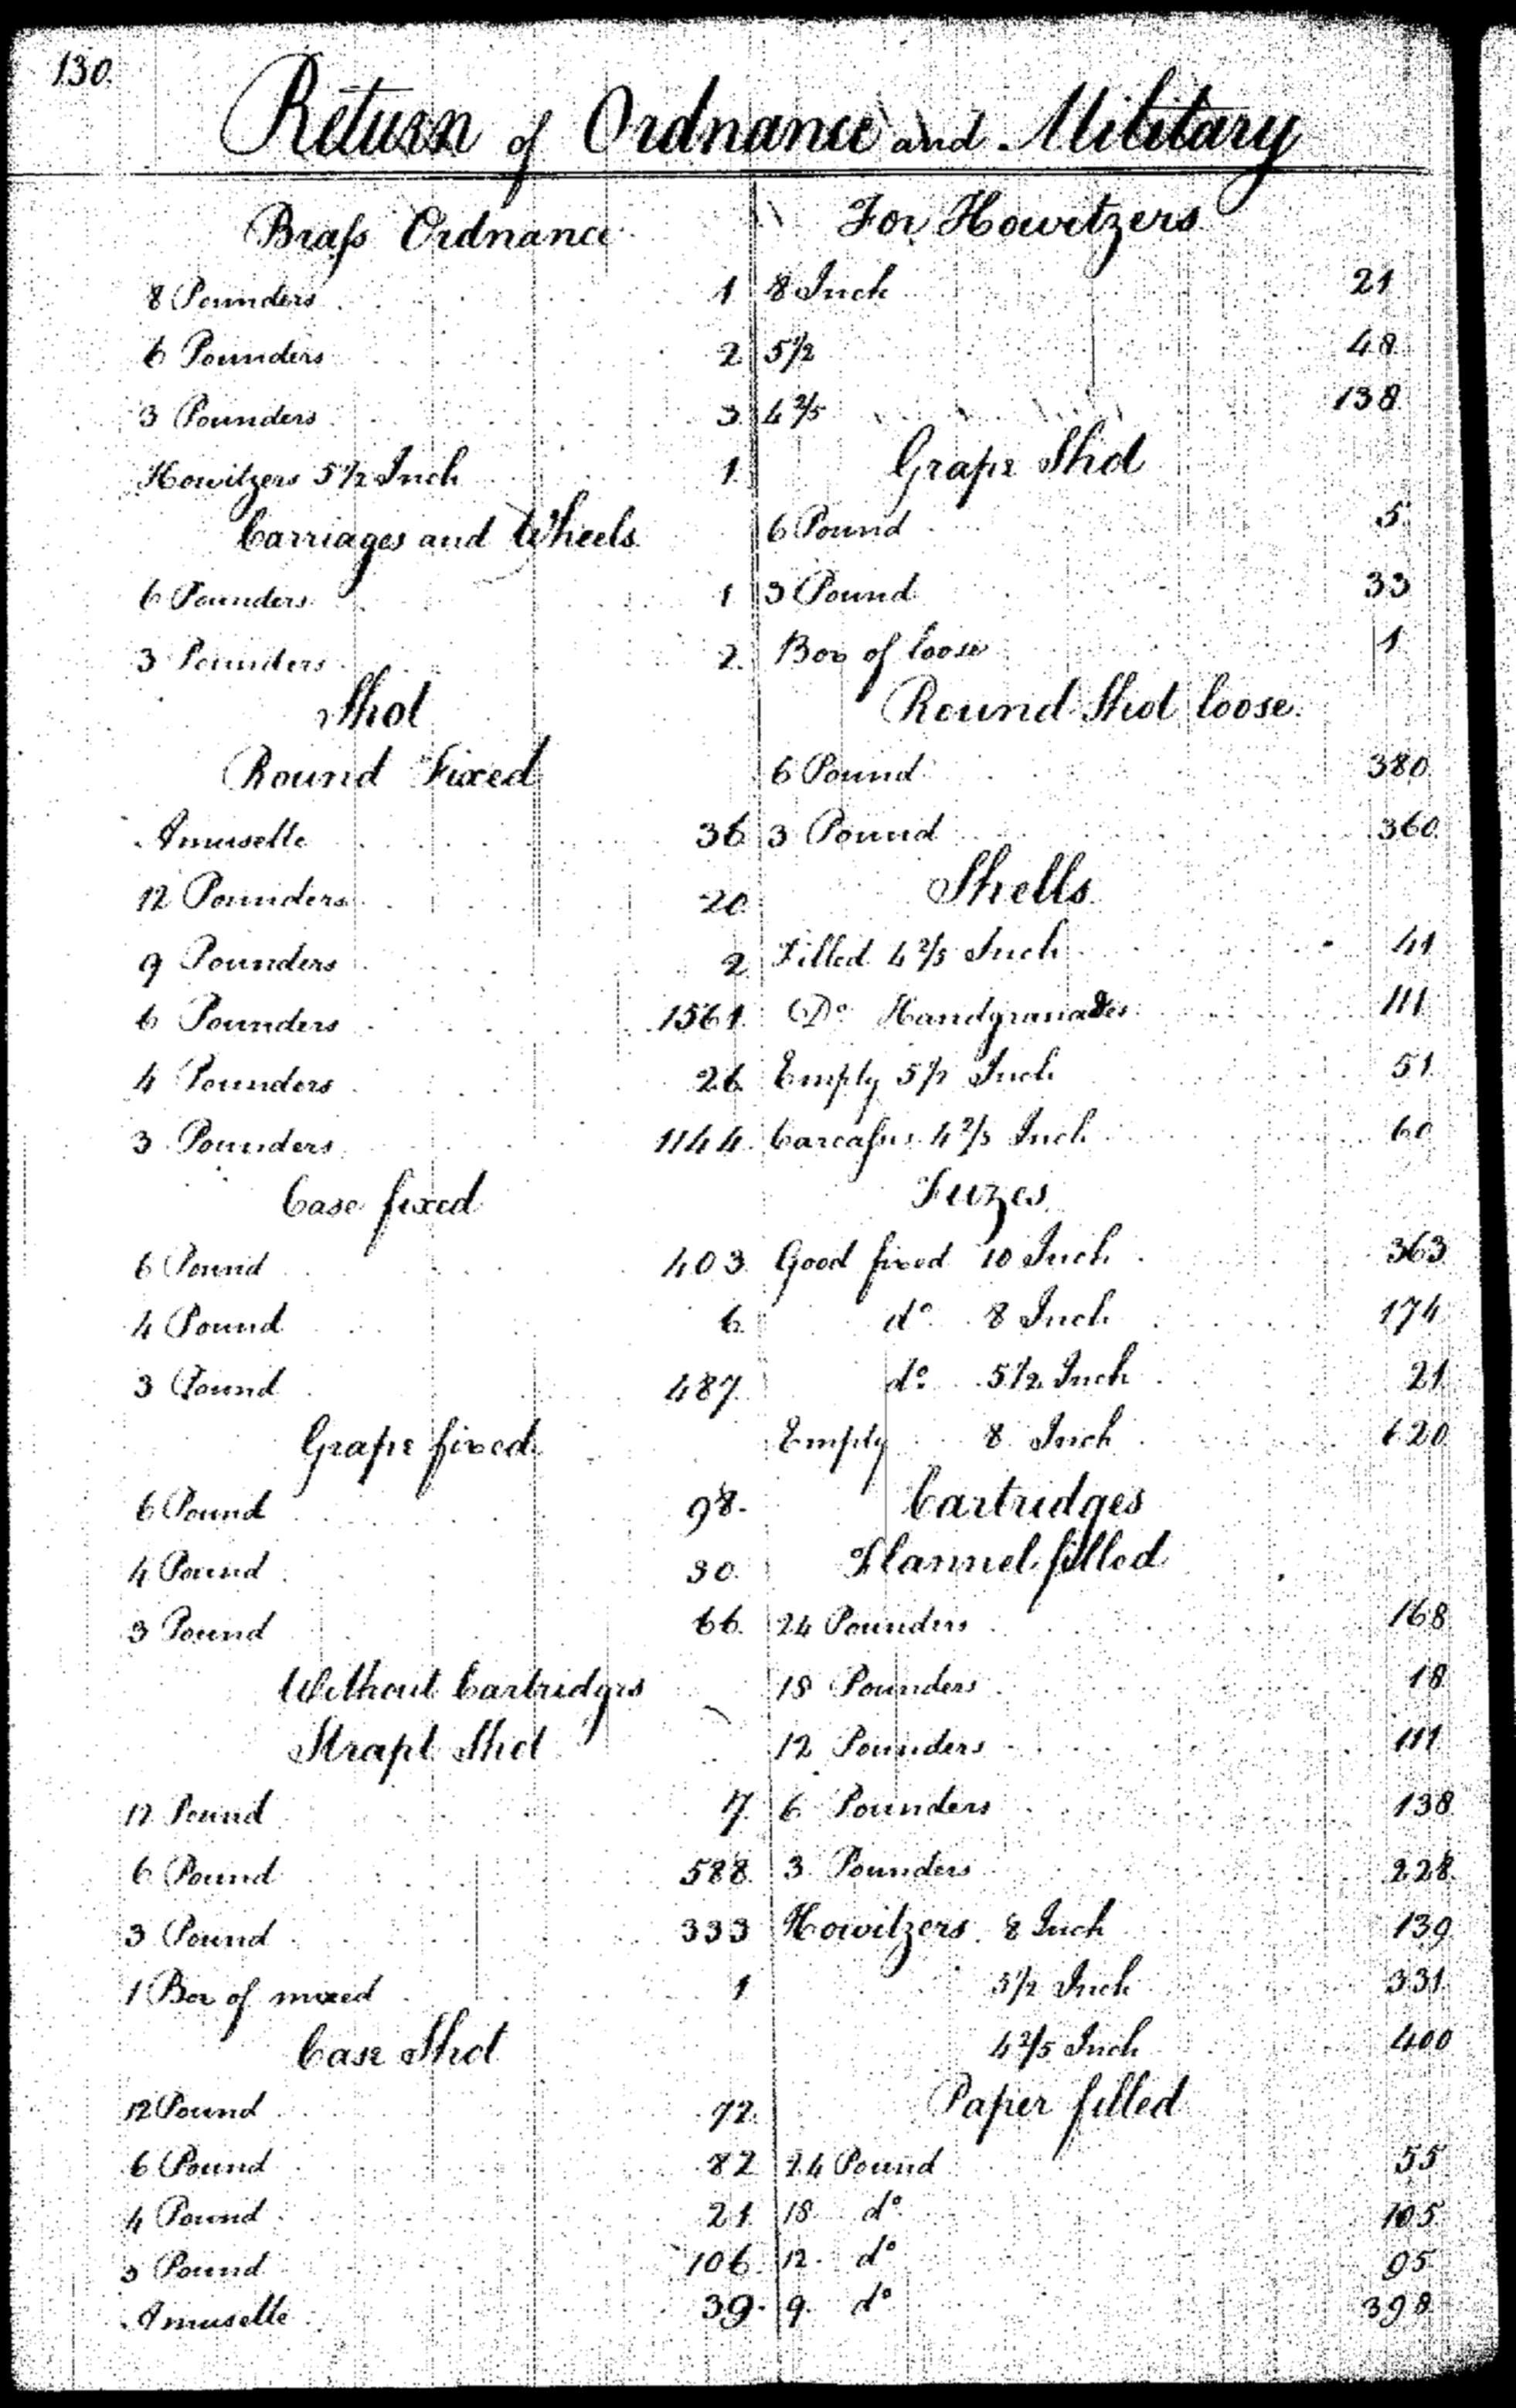 130.
Return of Ordnance and Military
Braſs Ordnance
8 Pounders 1
6 Pounders 2
3 Pounders 3
Howitzers 5 1/2 Inch 1
Carriages and Wheels
6 Pounders 1
3 Pounders 2
Shot
Round Fixed
Amusette 36
12 Pounders 20
9 Pounders 2
6 Pounders 1561
4 Pounders 26
3 Pounders 1144
Case fixed
6 Pound 403
4 Pound 6
3 Pound 487
Grape fixed
6 Pound 98
4 Pound 30
3 Pound 66
Without Cartridges
Strapt Shot
12 Pound 7
6 Pound 588
3 Pound 333
1 Box of mixed 1
Case Shot
12 Pound 72
6 Pound 82
4 Pound 21
3 Pound 106
Amusette 39
For Howitzers
8 Inch 21
5 1/2 48
4 2/5 138
Grape Shot
6 Pound 5
3 Pound 33
Box of loose 1
Round Shot loose
6 Pound 380
3 Pound 360
Shells
Filled 4 2/5 Inch 41
Do Handgranades 111
Empty 5 1/2 Inch 51
Carcaſses 4 2/5 Inch 60
Fuzes
Good fixed 10 Inch 363
do 8 Inch 174
do 5 1/2 Inch 21
Empty 8 Inch 620
Cartridges
Flannel filled
24 Pounders 168
18 Pounders 18
12 Pounders 111
6 Pounders 138
3 Pounders 228
Howitzers 8 Inch 139
5 1/2 Inch 331
4 2/5 Inch 400
Paper filled
24 Pound 55
18 do 105
12 do 95
9 do 398